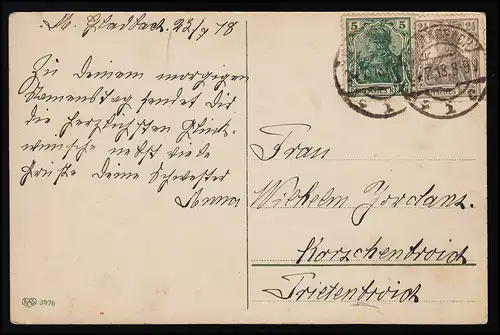 M. Gladbach. 22/7 18
Zu Deinem morgigen
Namenstag sendet Dir
die herzlichsten Glück-
wünsche nebst viele
Grüße Deine Schwester
Anna
5
2½ 2½
Frau
Wilhelm Jordans.
Korschenbroich
Trietenbroich
EAS 3976